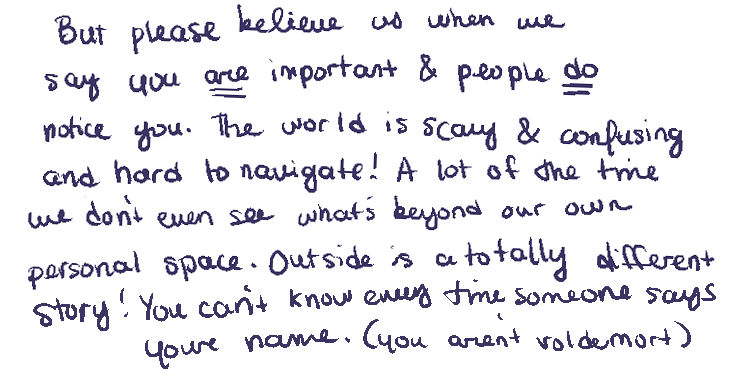 But please believe us when we
say you are important & people do
notice you. The world is scary & confusing
and hard to navigate! A lot of the time
we don't even see what's beyond our own
personal space. Outside is a totally different
story! You can't know every time someone says
youre name. (you aren't voldemort)